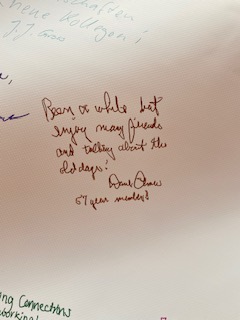 neue Kollegen!
J.J.
Been a while but
enjoy many friends
and talking about the
old days!
57 year member!
ng Connections
working!